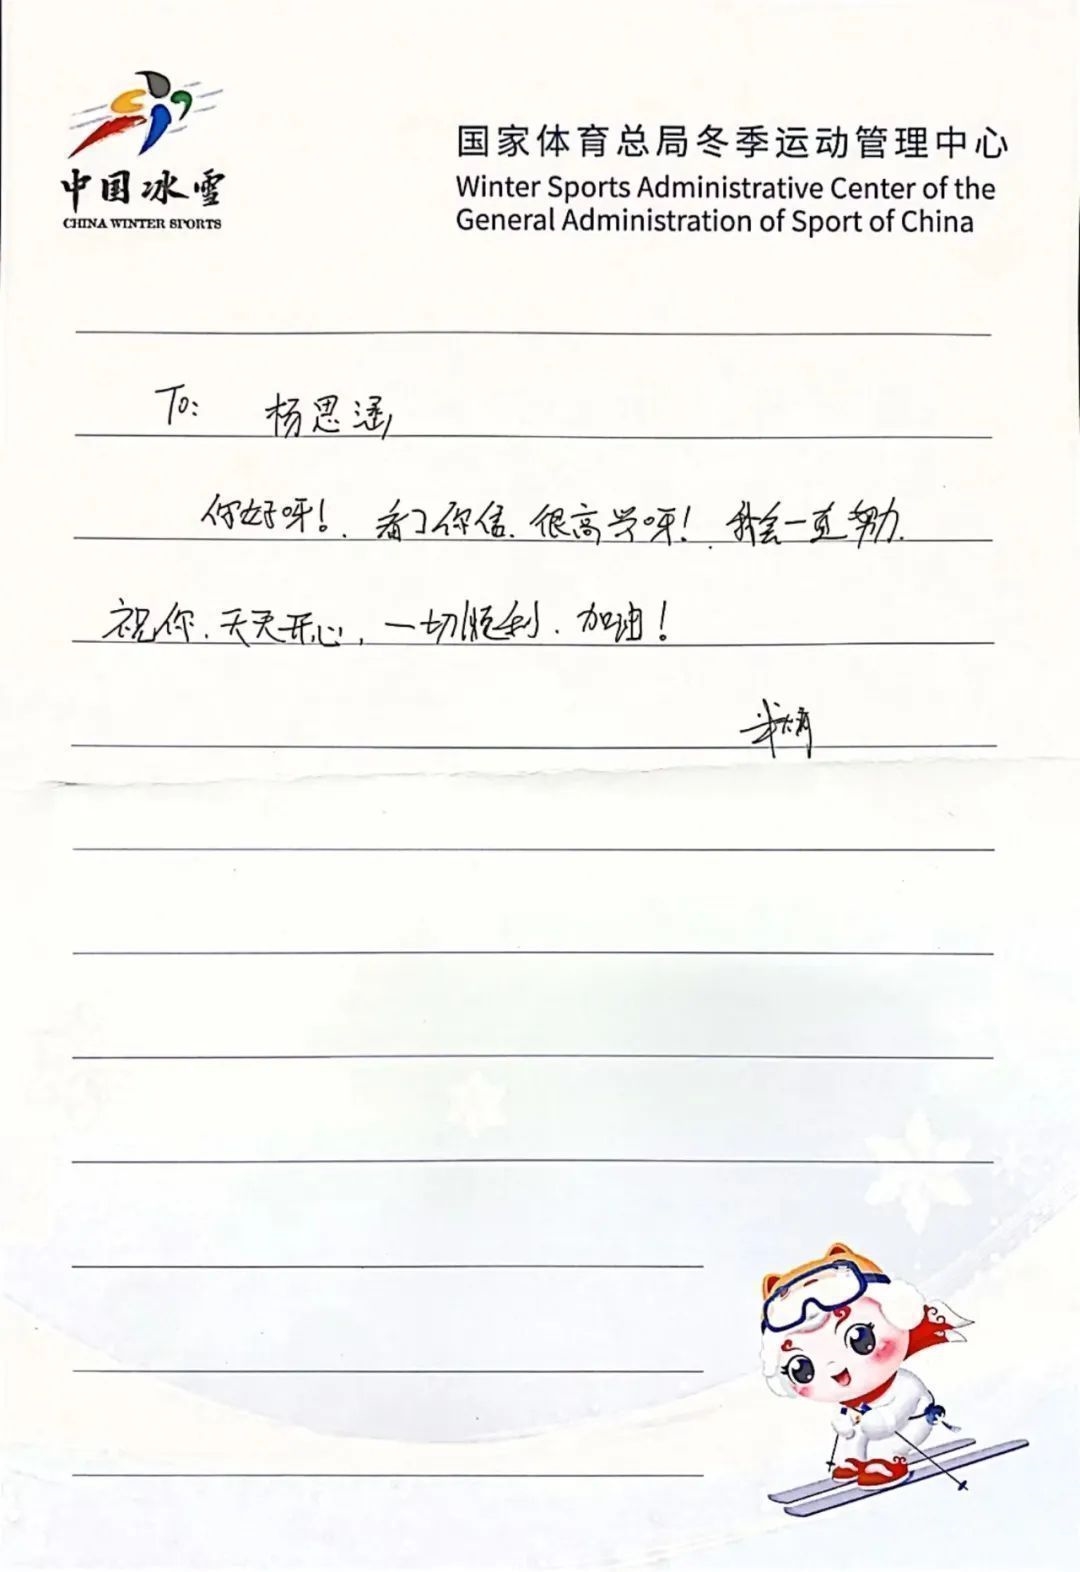 中国冰雪
CHINA WINTER SPORTS
国家体育总局冬季运动管理中心
Winter Sports Administrative Center of the
General Administration of Sport of China
To: 杨思涵
你好呀!. 看了你信. 很高兴呀! . 我会一直努力.
祝你. 天天开心, 一切顺利. 加油!